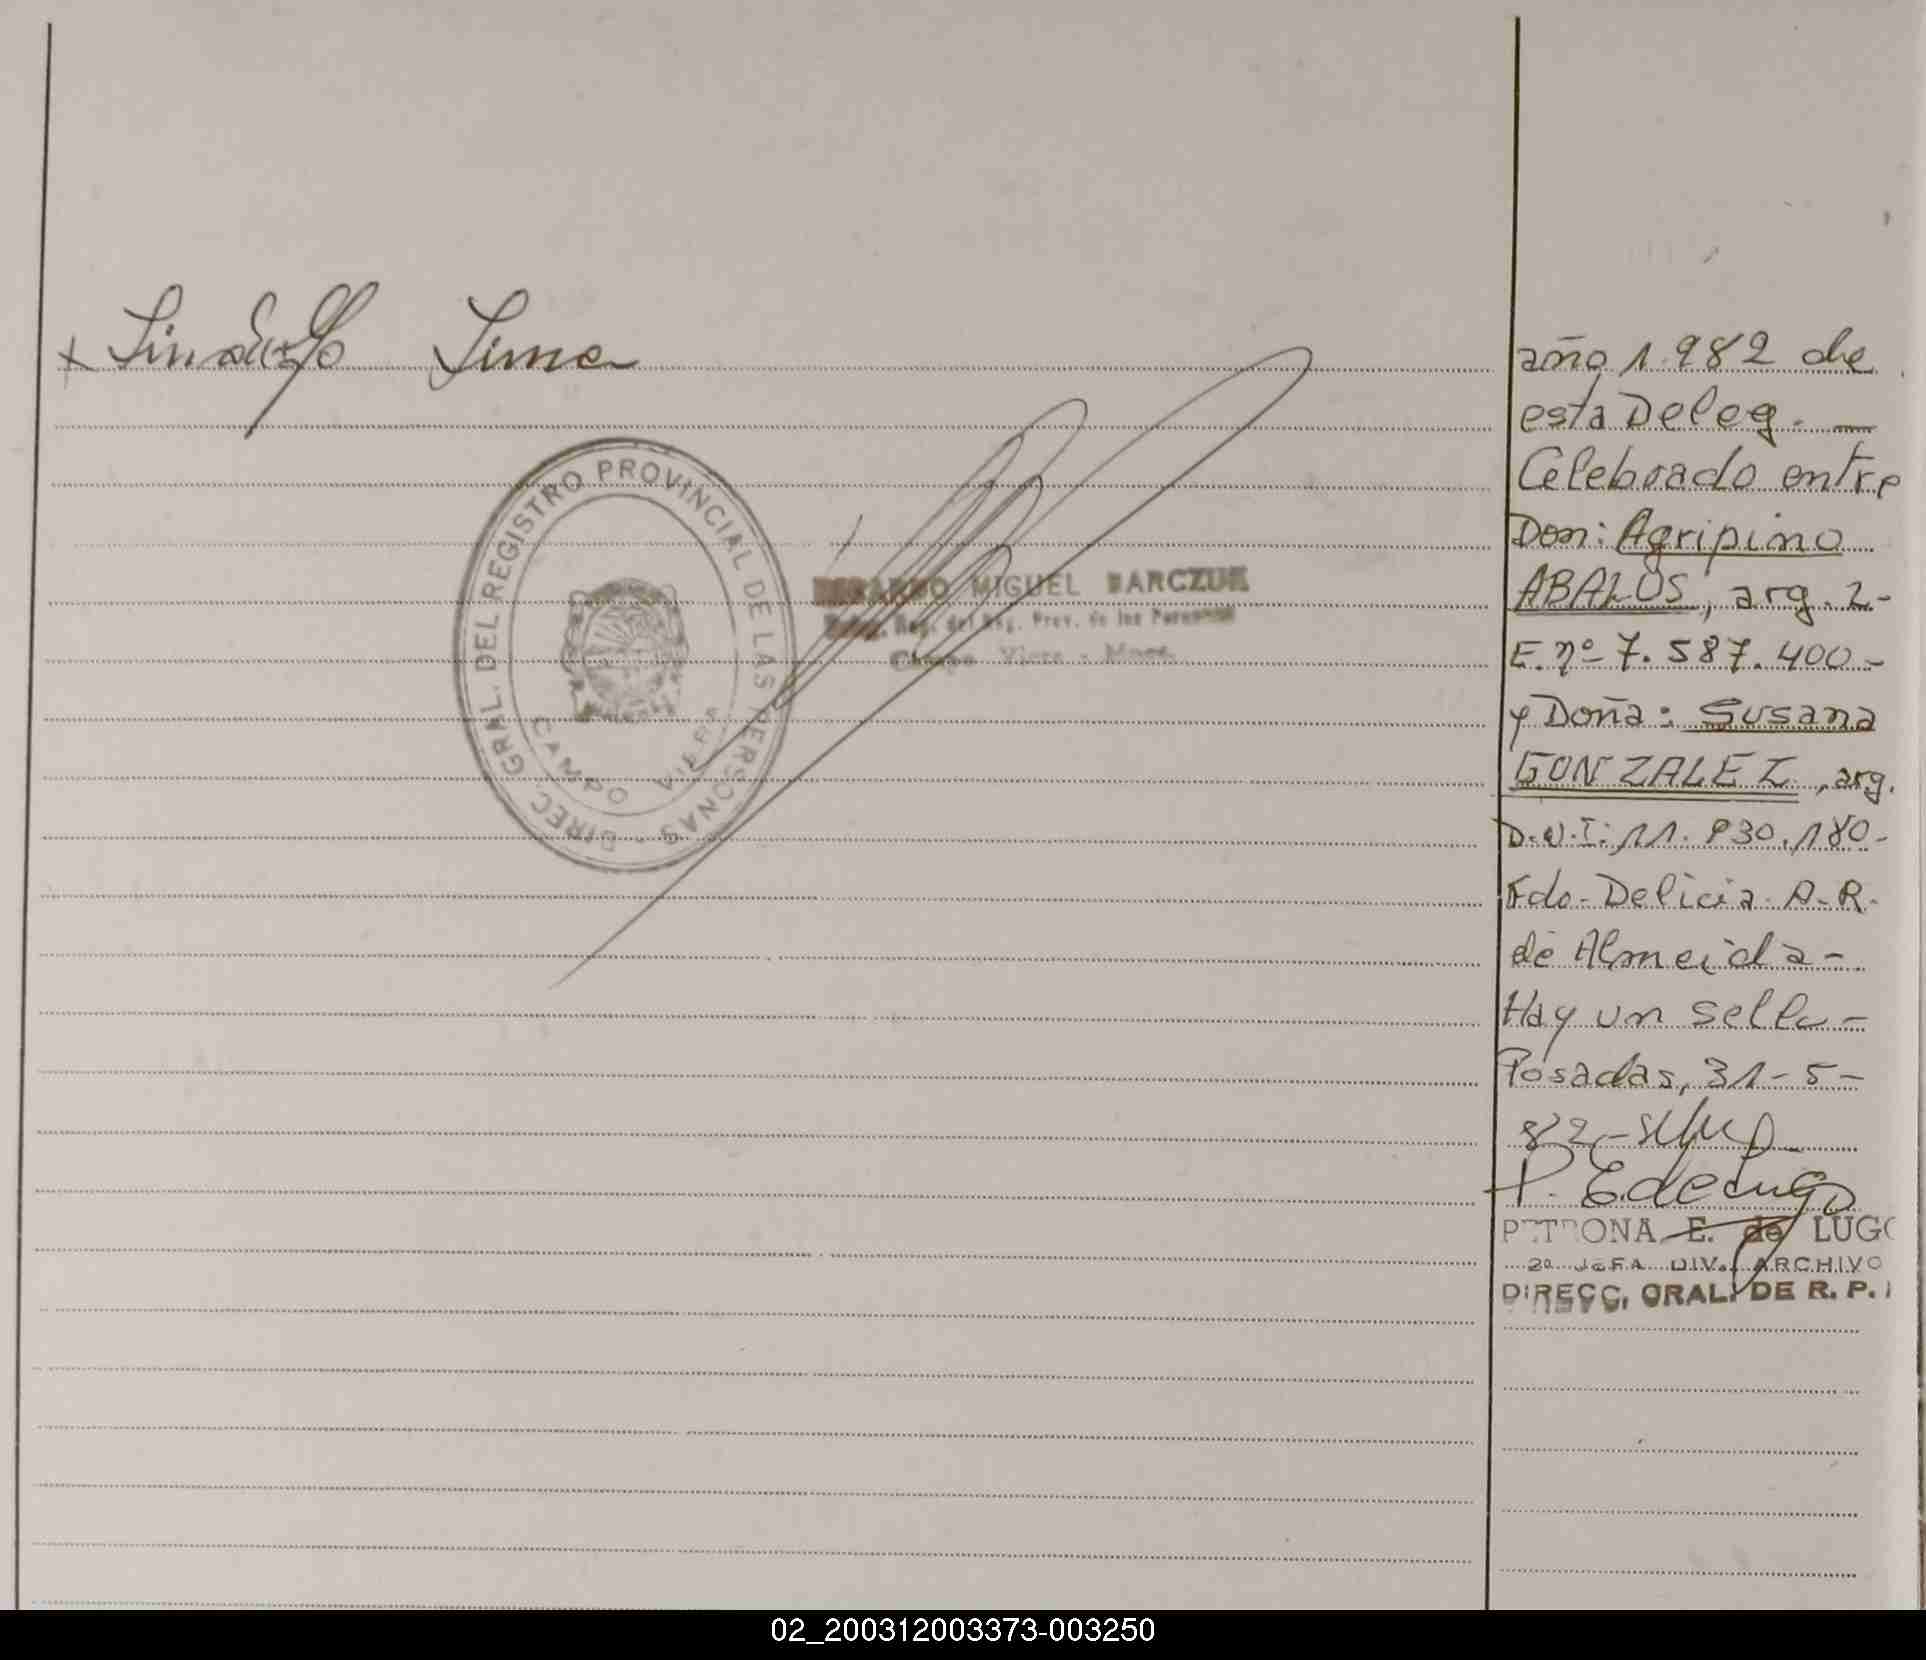 + Lindolfo Lima
DIREC. GRAL. DEL REGISTRO PROVINCIAL DE LAS PERSONAS -
CAMPO VIERA
MIGUEL BARCZUK
Reg. del Reg. Prov. de las Personas
Campo Viera - Mnes.
año 1.982 de
esta Deleg. —
Celebrado entre
Don: Agripino
ABALOS, arg. L-
E. nº 7.587.400-
y Doña: Susana
GONZALEZ, arg.
D.N.I: 11.930.180-
Fdo- Delicia. A-R-
de Almeida-
Hay un sello-
Posadas, 31-5-
82-
P. E de Lugo
PETRONA E. de LUGO
2a JEFA DIV. ARCHIVO
DIRECC. GRAL. DE R. P.
02_200312003373-003250